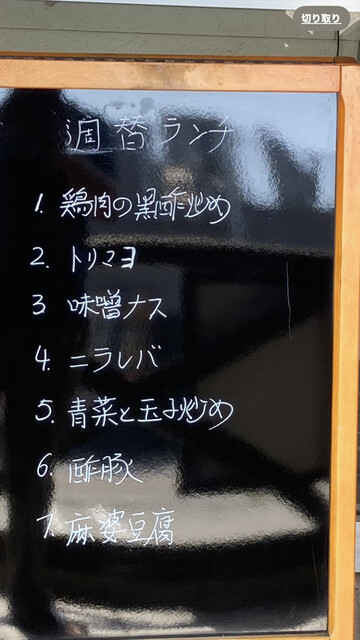 切り取り
週替ランチ
1. 鶏肉の黒酢炒め
2. トリマヨ
3 味噌ナス
4. ニラレバ
5. 青菜と玉子炒め
6. 酢豚
7. 麻婆豆腐